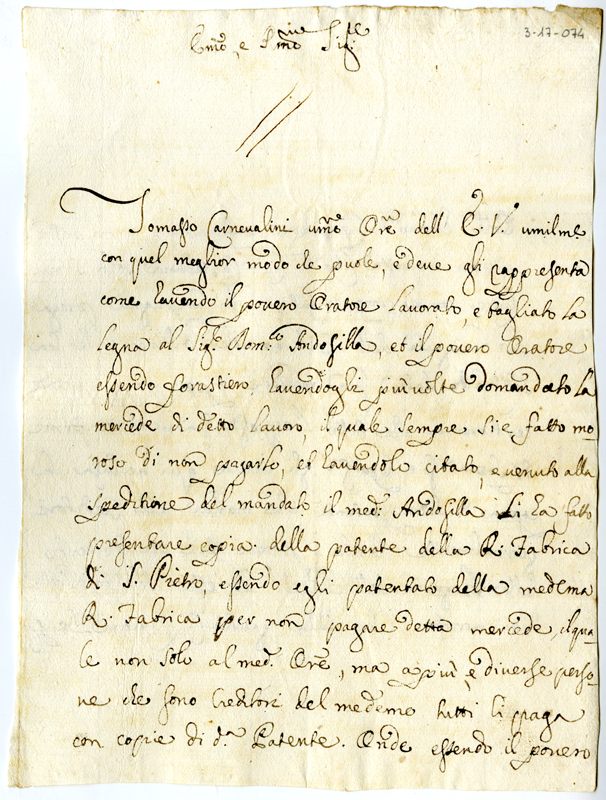 3-17-074
Em̃o, e Rmo Sig.re
Tomasso Carnevalini um̃o Or̃e dell E. V. umilm.e
con quel meglior modo che puole, e deve gli rappresenta
come havendo il povero Oratore lavorato, e tagliato la
legna al Sig.r Dom.co Andosilla, et il povero Oratore
essendo forastiero, havendogli più volte domandato la
mercede di detto lavoro, il quale sempre si e fatto mo-
roso di non pagarlo, et havendolo citato, e venuto alla
speditione del mandato il med.o Andosilla li ha fatto
presentare copia della patente della R. Fabrica
di S. Pietro, essendo egli patentato della medema
R. Fabrica per non pagare detta mercede, il qua-
le non solo al med.o Or̃e, ma a più, e diverse perso-
ne che sono Creditori del medemo tutti li paga
con copie di d.a Patente. Onde essendo il povero